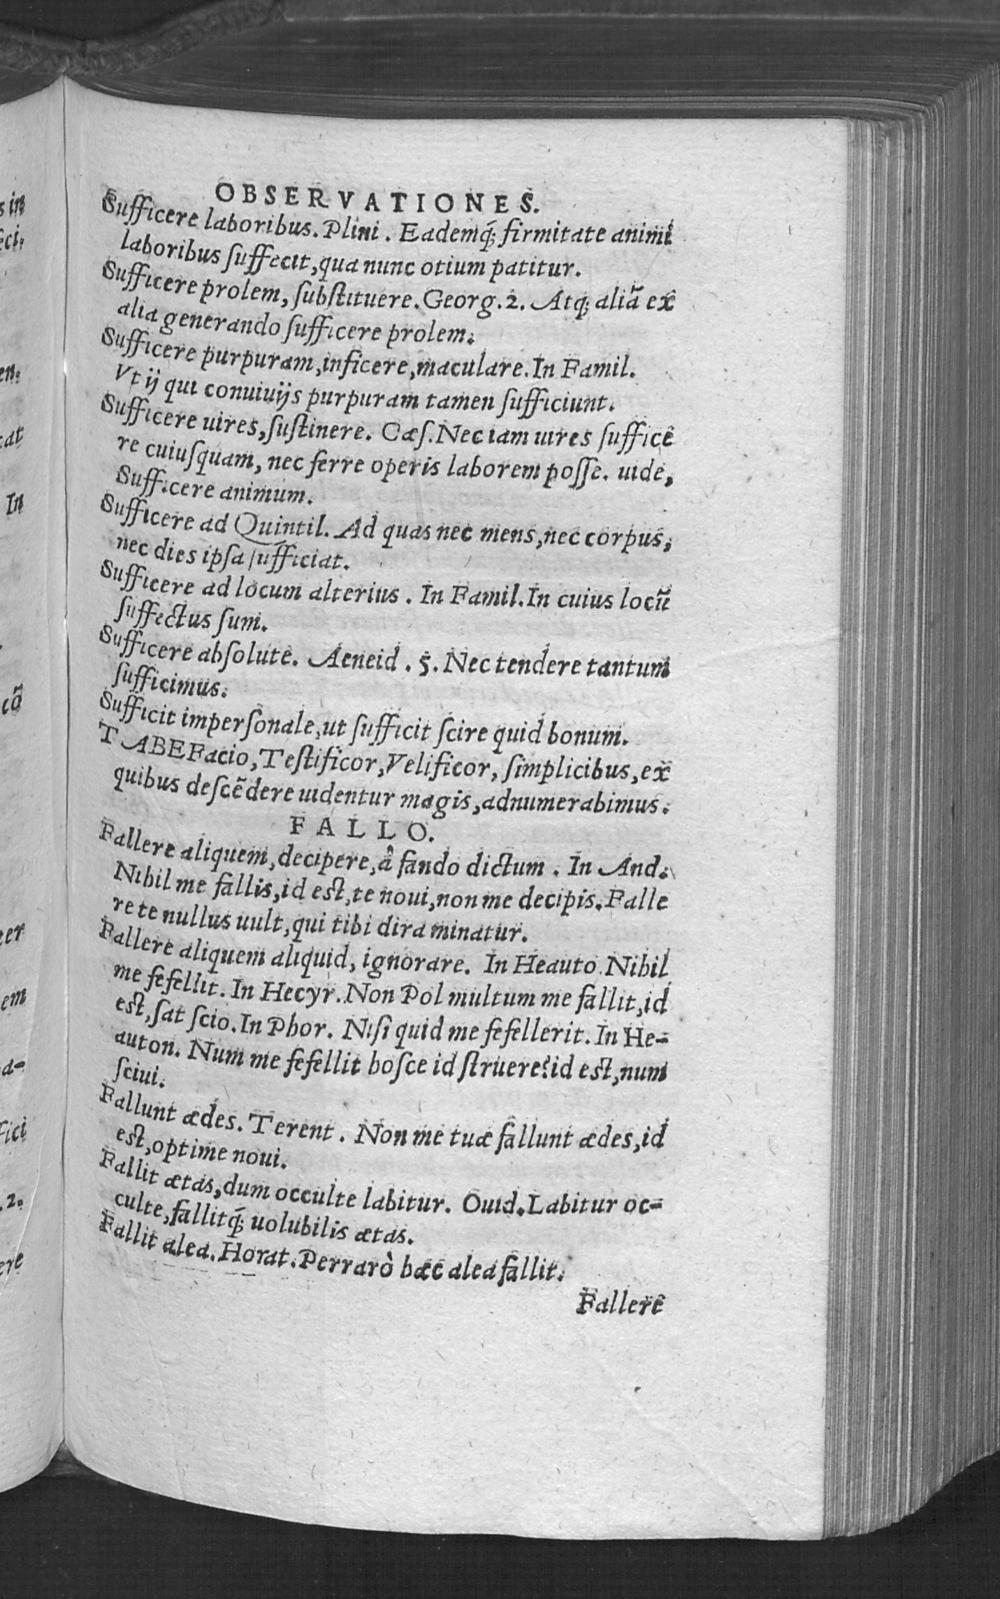 OBSERVATIONES.
Sufficere laboribus. Plini. Eademq́; firmitate animi
laboribus suffecit, qua nunc otium patitur.
Sufficere prolem, substituere. Georg. 2. Atq; aliã ex
alia generando sufficere prolem.
Sufficere purpuram, inficere, maculare. In Famil.
Vt ij qui conuiuijs purpuram tamen sufficiunt.
Sufficere uires, sustinere. Cæs. Nec iam uires suffice
re cuiusquam, nec ferre operis laborem posse. uide,
Sufficere animum.
Sufficere ad Quintil. Ad quas nec mens, nec corpus,
nec dies ipsa sufficiat.
Sufficere ad locum alterius. In Famil. In cuius locũ
suffectus sum.
Sufficere absolute. Aeneid. 5. Nec tendere tantum
sufficimus.
Sufficit impersonale, ut sufficit scire quid bonum.
TABEFacio, Testificor, Velificor, simplicibus, ex
quibus descẽdere uidentur magis, adnumerabimus.
FALLO.
Fallere aliquem, decipere, â fando dictum. In And.
Nihil me fallis, id est, te noui, non me decipis. Falle
re te nullus uult, qui tibi dira minatur.
Fallere aliquem aliquid, ignorare. In Heauto. Nihil
me fefellit. In Hecyr. Non Pol multum me fallit, id
est, sat scio. In Phor. Nisi quid me fefellerit. In He-
auton. Num me fefellit hosce id struere? id est, num
sciui.
Fallunt ædes. Terent. Non me tuæ fallunt ædes, id
est, optime noui.
Fallit ætas, dum occulte labitur. Ouid. Labitur oc-
culte, fallitq́; uolubilis ætas.
Fallit alea. Horat. Perrarò hæc alea fallit.
Fallere